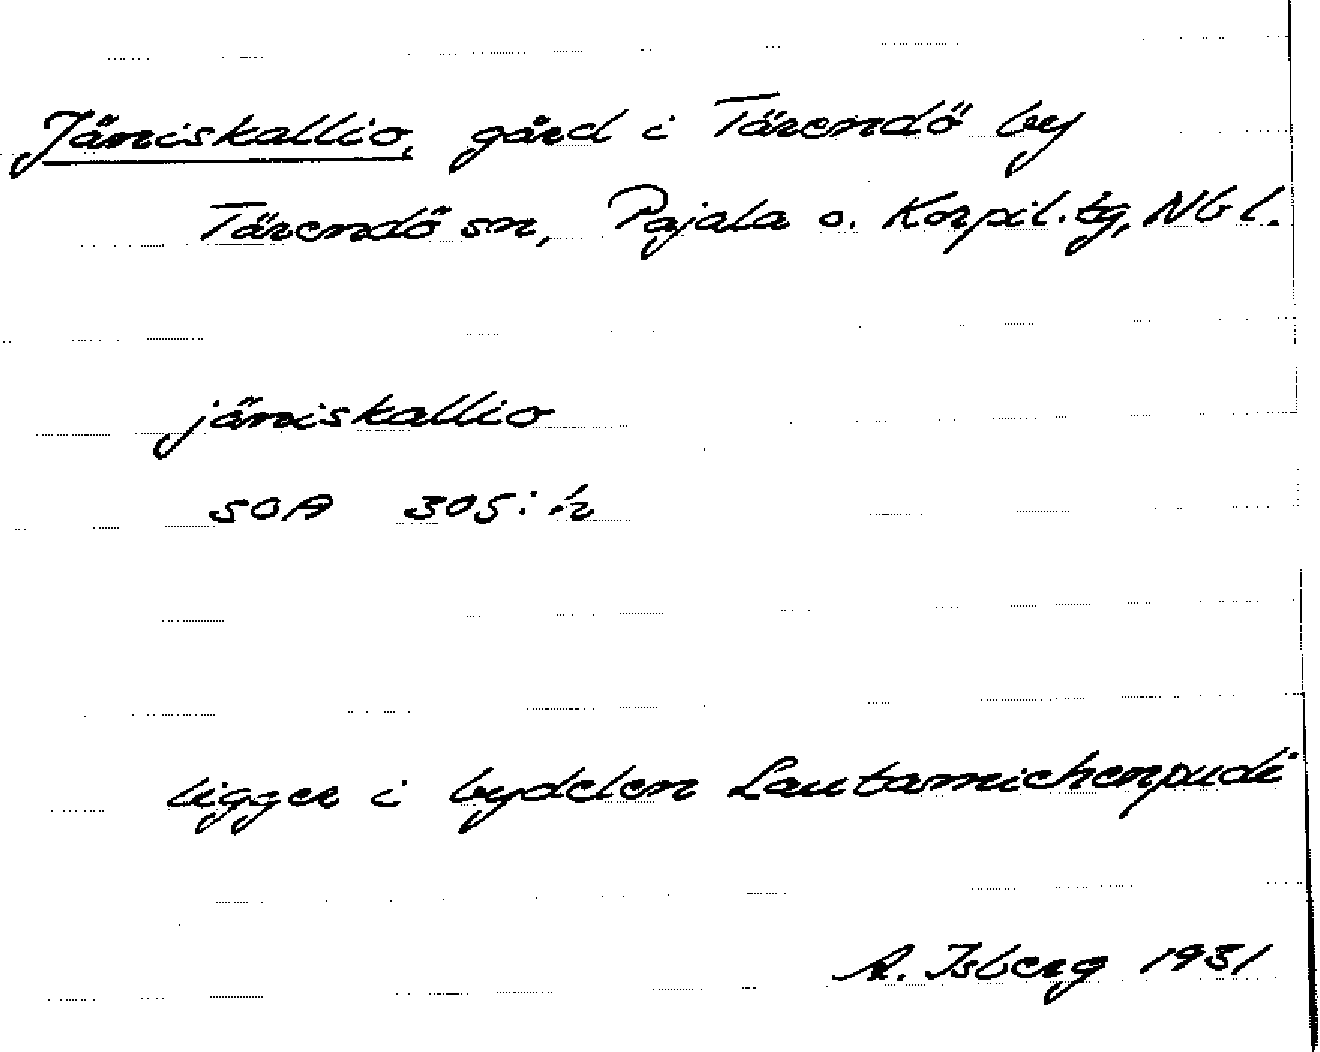 Jäniskallio, gård i Tärendö by
Tärendö sn, Pajala o. Korpil. tg, Nb l.
jäniskallio
SOA 305: h
ligger i bydelen Lautamichenpudi
A. Isberg 1931